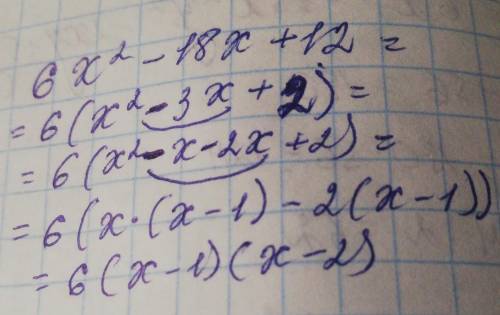 6x² - 18x + 12 =
= 6(x² - 3x + 2) =
= 6(x² - x - 2x + 2) =
= 6(x·(x - 1) - 2(x - 1))
= 6(x - 1)(x - 2)